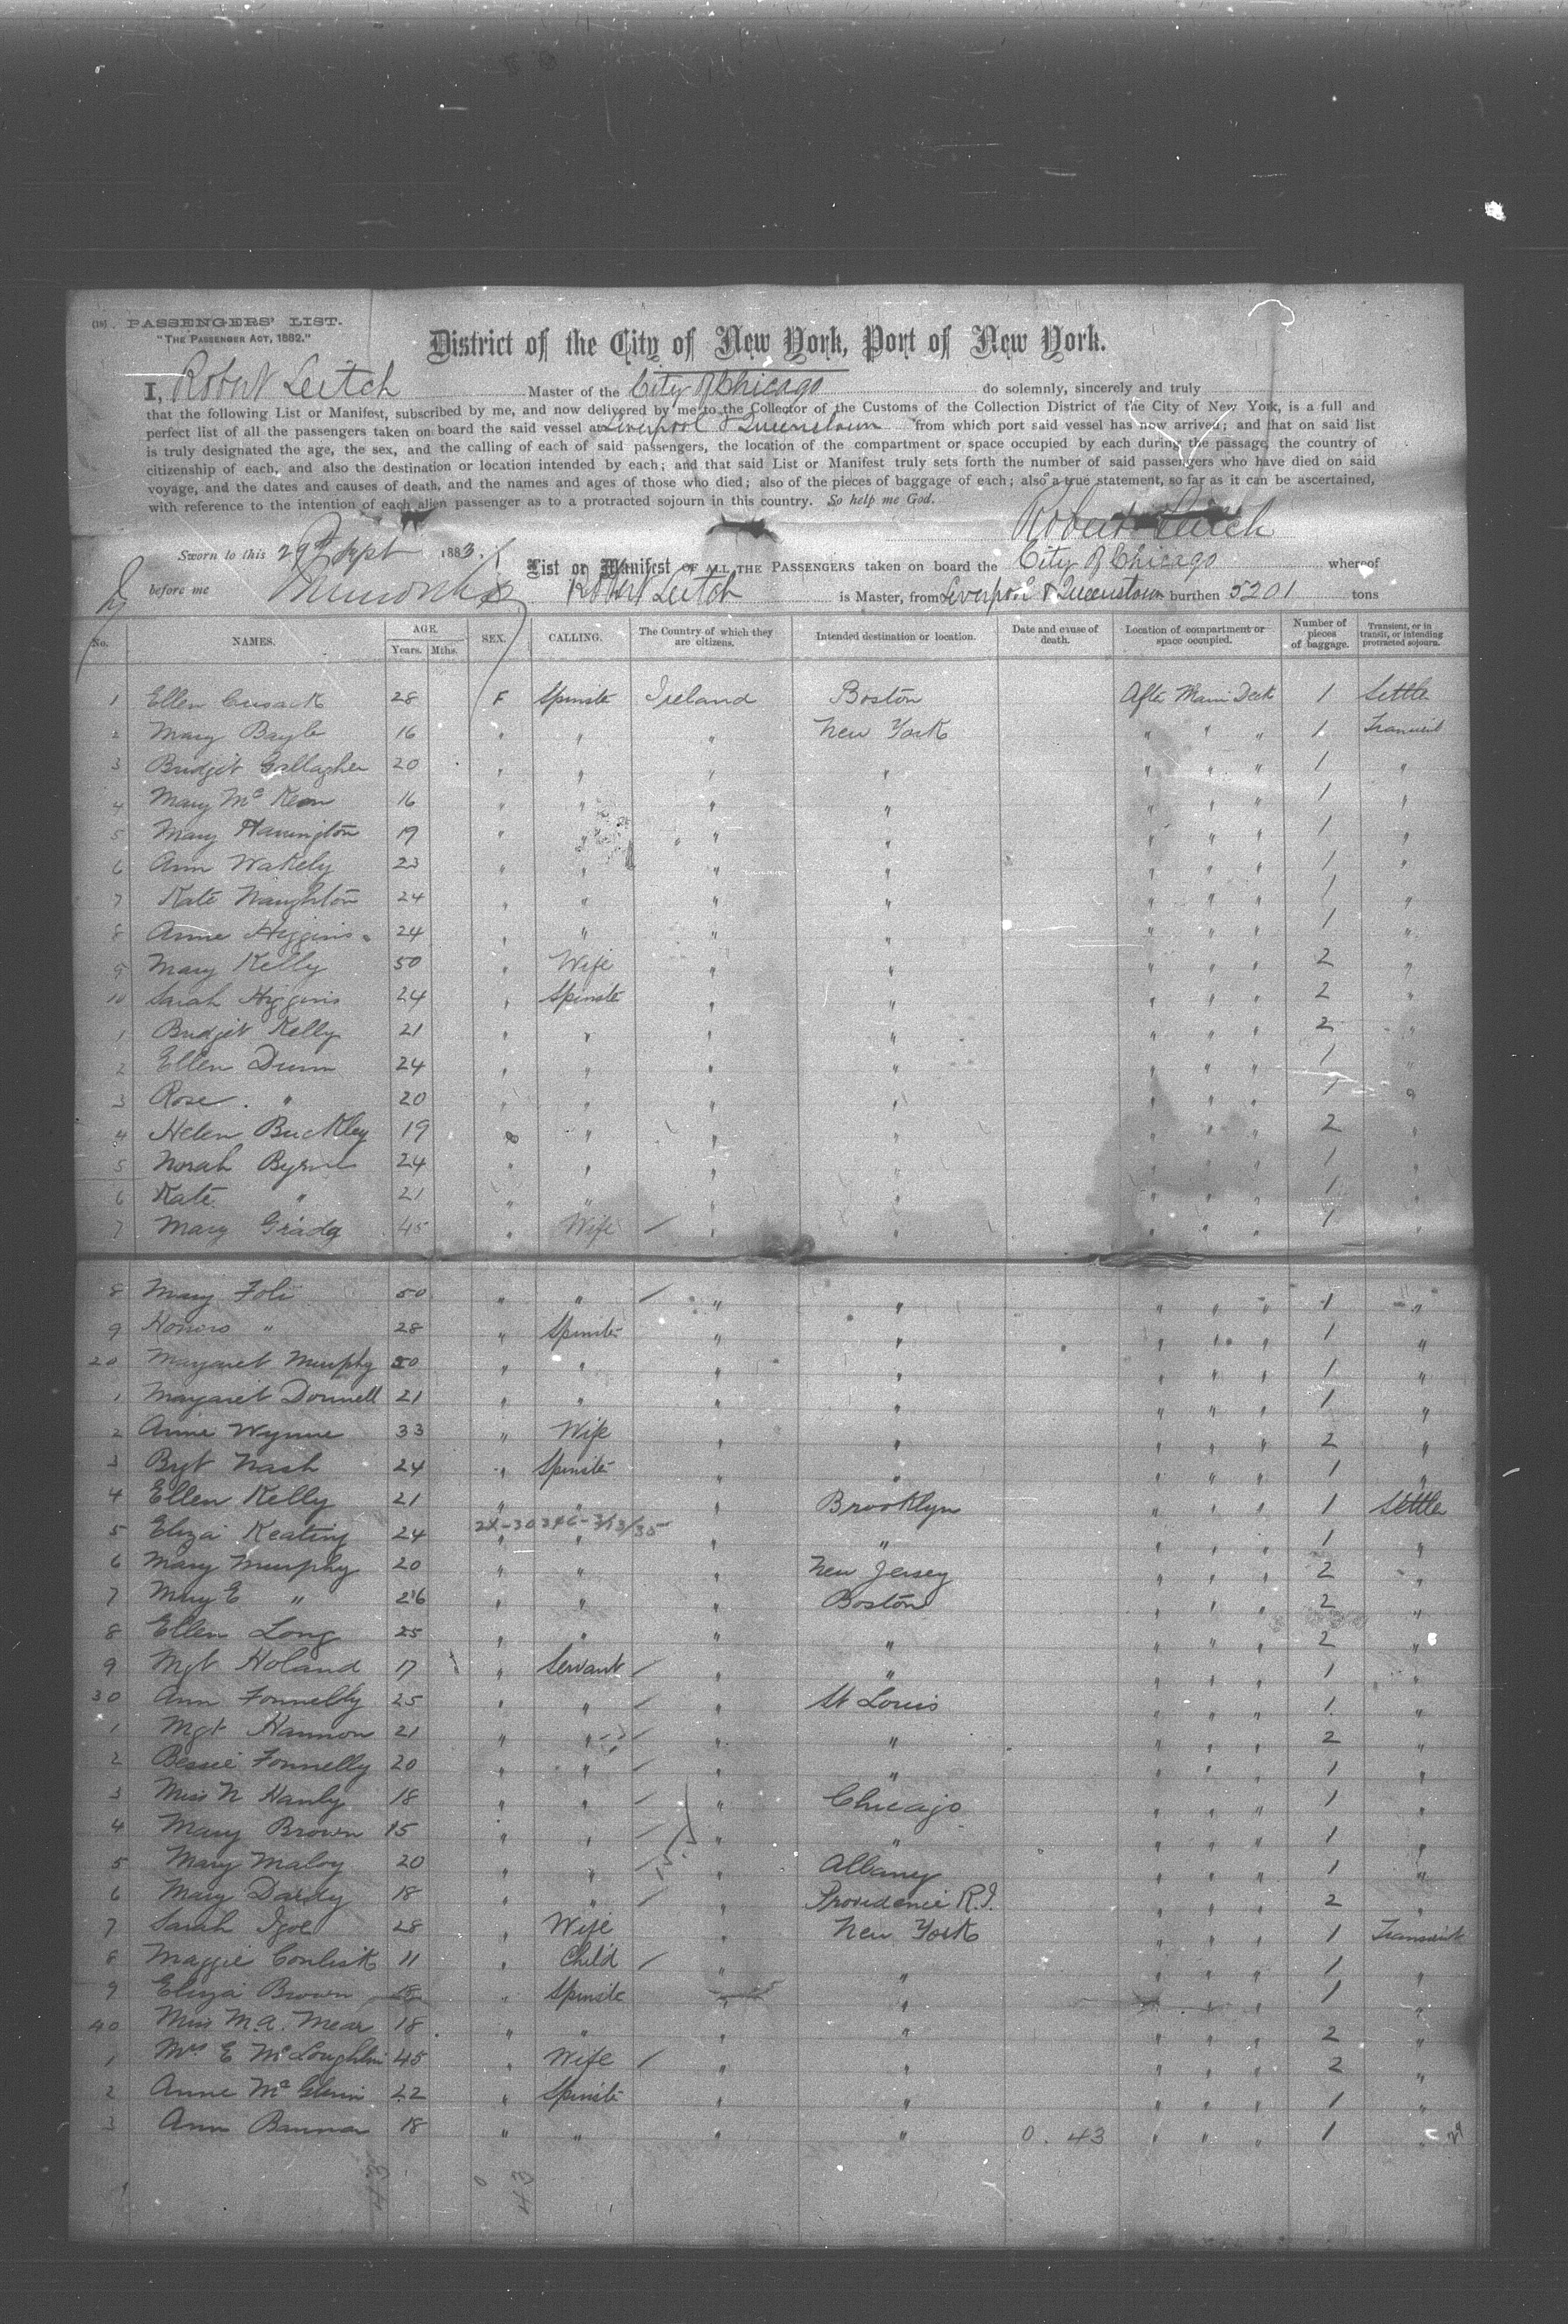 (18) PASSENGERS' LIST.
"THE PASSENGER ACT, 1882."
District of the City of New York, Port of New York.
I, Robert Leitch Master of the City of Chicago do solemnly, sincerely and truly
that the following List or Manifest, subscribed by me, and now delivered by me to the Collector of the Customs of the Collection District of the City of New York, is a full and
perfect list of all the passengers taken on board the said vessel at Liverpool & Queenstown from which port said vessel has now arrived; and that on said list
is truly designated the age, the sex, and the calling of each of said passengers, the location of the compartment or space occupied by each during the passage, the country of
citizenship of each, and also the destination or location intended by each; and that said List or Manifest truly sets forth the number of said passengers who have died on said
voyage, and the dates and causes of death, and the names and ages of those who died; also of the pieces of baggage of each; also a true statement, so far as it can be ascertained,
with reference to the intention of each alien passenger as to a protracted sojourn in this country. So help me God.
Robert Leitch
Sworn to this 29th Sept 1883. List or Manifest OF ALL THE PASSENGERS taken on board the City of Chicago whereof
before me Robert Leitch is Master, from Liverpool & Queenstown burthen 5201 tons
No. NAMES. AGE. Years. Mths. SEX. CALLING. The Country of which they are citizens. Intended destination or location. Date and cause of death. Location of compartment or space occupied. Number of pieces of baggage. Transient, or in transit, or intending protracted sojourn.
1 Ellen Cusack 28 F Spinste Ireland Boston After Main Deck 1 Settle
2 Mary Bayle 16 " " " New York " " " 1 Transient
3 Bridget Gallagher 20 " " " " " " " 1 "
4 Mary Mc Keon 16 " " " " " " " 1 "
5 Mary Harrington 19 " " " " " " " 1 "
6 Ann Wakely 23 " " " " " " " 1 "
7 Kate Naughton 24 " " " " " " " 1 "
8 Anne Higgins 24 " " " " " " " 1 "
9 Mary Kelly 50 " Wife " " " " " 2 "
10 Sarah Higgins 24 " Spinste " " " " " 2 "
1 Bridget Kelly 21 " " " " " " " 2 "
2 Ellen Dunn 24 " " " " " " " 1 "
3 Rose " 20 " " " " " " " 1 "
4 Helen Buckley 19 " " " " " " " 2 "
5 Norah Byrne 24 " " " " " " " 1 "
6 Kate " 21 " " " " " " " 1 "
7 Mary Grady 45 " Wife " " " " " 1 "
8 Mary Foli 50 " " " " " " " 1 "
9 Honora " 28 " Spinste " " " " " 1 "
20 Margaret Murphy " " " " " " " 1 "
1 Margaret Donnell 21 " " " " " " " 1 "
2 Annie Wynne 33 " Wife " " " " " 2 "
3 Bgt Nash 24 " Spinste " " " " " 1 "
4 Ellen Kelly 21 " " " Brooklyn " " " 1 Settle
5 Eliza Keating 24 " " " " " " " 1 "
6 Mary Murphy 20 " " " New Jersey " " " 2 "
7 Mary E " 26 " " " Boston " " " 2 "
8 Ellen Long 25 " " " " " " " 2 "
9 Mgt Holand 17 " Servant " " " " " 1 "
30 Ann Fonnelly 25 " " " St Louis " " " 1 "
1 Mgt Hannon 21 " " " " " " " 2 "
2 Bessie Fonnelly 20 " " " " " " " 1 "
3 Miss N Hanly 18 " " " Chicago " " " 1 "
4 Mary Brown 15 " " " " " " " 1 "
5 Mary Maloy 20 " " " Albany " " " 1 "
6 Mary Dardy 18 " " " Providence R.I. " " " 2 "
7 Sarah Igoe 28 " Wife " New York " " " 1 Transient
8 Maggie Conlisk 11 " Child " " " " " 1 "
9 Eliza Brown 18 " Spinste " " " " " 1 "
40 Miss M.A. Mear 18 " " " " " " " 2 "
1 Mrs E McLoughlin 45 " Wife " " " " " 2 "
2 Anne Mc Glinn 22 " Spinste " " " " " 1 "
3 Ann 18 " " " " 0. 43 " " " 1 "